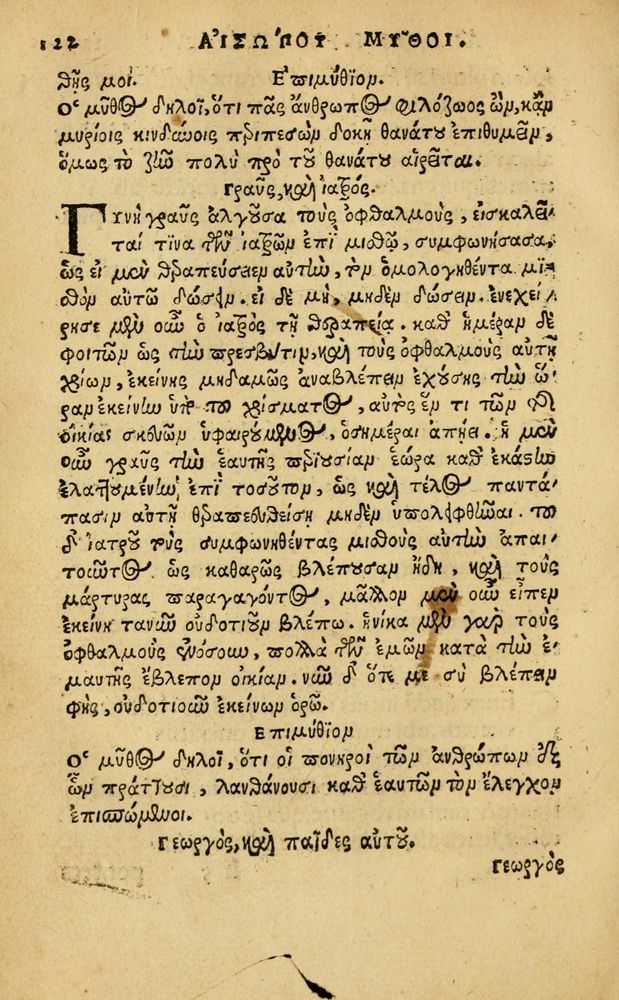 122 ΑἸΣΩ´ΠΟΥ ΜΥ͂ΘΟΙ.
θῆς μοι. Ἐπιμύθιον.
Ὁ μῦθος δηλοῖ, ὅτι πᾶς ἄνθρωπος φιλόζωος ὢν, κἂν
μυρίοις κινδύνοις περιπεσὼν δοκῇ θανάτου ἐπιθυμεῖν,
ὅμως τὸ ζῆν πολὺ πρὸ τοῦ θανάτου αἱρεῖται.
Γραῦς, καὶ ἰατρός.
Γυνὴ γραῦς ἀλγοῦσα τοὺς ὀφθαλμοὺς, εἰσκαλεῖ-
ταί τινα τῶν ἰατρῶν ἐπὶ μισθῷ, συμφωνήσασα,
ὡς εἰ μὲν θεραπεύσειεν αὐτὴν, τὸν ὁμολογηθέντα μι-
σθὸν αὐτῷ δώσειν. εἰ δὲ μὴ, μηδὲν δώσειν. ἐνεχεί-
ρησε μὲν οὖν ὁ ἰατρὸς τῇ θεραπείᾳ. καθ' ἡμέραν δὲ
φοιτῶν ὡς τὴν πρεσβῦτιν, καὶ τοὺς ὀφθαλμοὺς αὐτῇ
χρίων, ἐκείνης μηδαμῶς ἀναβλέπειν ἐχούσης τὴν ὥ-
ραν ἐκείνην ὑπὸ τοῦ χρίσματος, αὐτὸς ἕν τι τῶν τῆς
οἰκίας σκευῶν ὑφαιρούμενος, ὁσημέραι ἀπῄει. ἡ μὲν
οὖν γραῦς τὴν ἑαυτῆς περιουσίαν ἑώρα καθ' ἑκάστην
ἐλαττουμένην, ἐπὶ τοσοῦτον, ὡς καὶ τέλος παντά-
πασιν αὐτῇ θεραπευθείσῃ μηδὲν ὑπολειφθῆναι. τοῦ
δ' ἰατροῦ τοὺς συμφωνηθέντας μισθοὺς αὐτὴν ἀπαι-
τοῦντος ὡς καθαρῶς βλέπουσαν ἤδη, καὶ τοὺς
μάρτυρας παραγαγόντος, μᾶλλον μὲν οὖν εἶπεν
ἐκείνη τανῦν οὐδοτιοῦν βλέπω. ἡνίκα μὲν γὰρ τοὺς
ὀφθαλμοὺς ἐνόσουν, πολλὰ τῶν ἐμῶν κατὰ τὴν ἐ-
μαυτῆς ἔβλεπον οἰκίαν. νῦν δ' ὅτε με σὺ βλέπειν
φῂς, οὐδοτιοῦν ἐκείνων ὁρῶ.
Ἐπιμύθιον
Ὁ μῦθος δηλοῖ, ὅτι οἱ πονηροὶ τῶν ἀνθρώπων ἐξ
ὧν πράττουσι, λανθάνουσι καθ' ἑαυτῶν τὸν ἔλεγχον
ἐπισπώμενοι.
Γεωργὸς, καὶ παῖδες αὐτοῦ.
Γεωργὸς